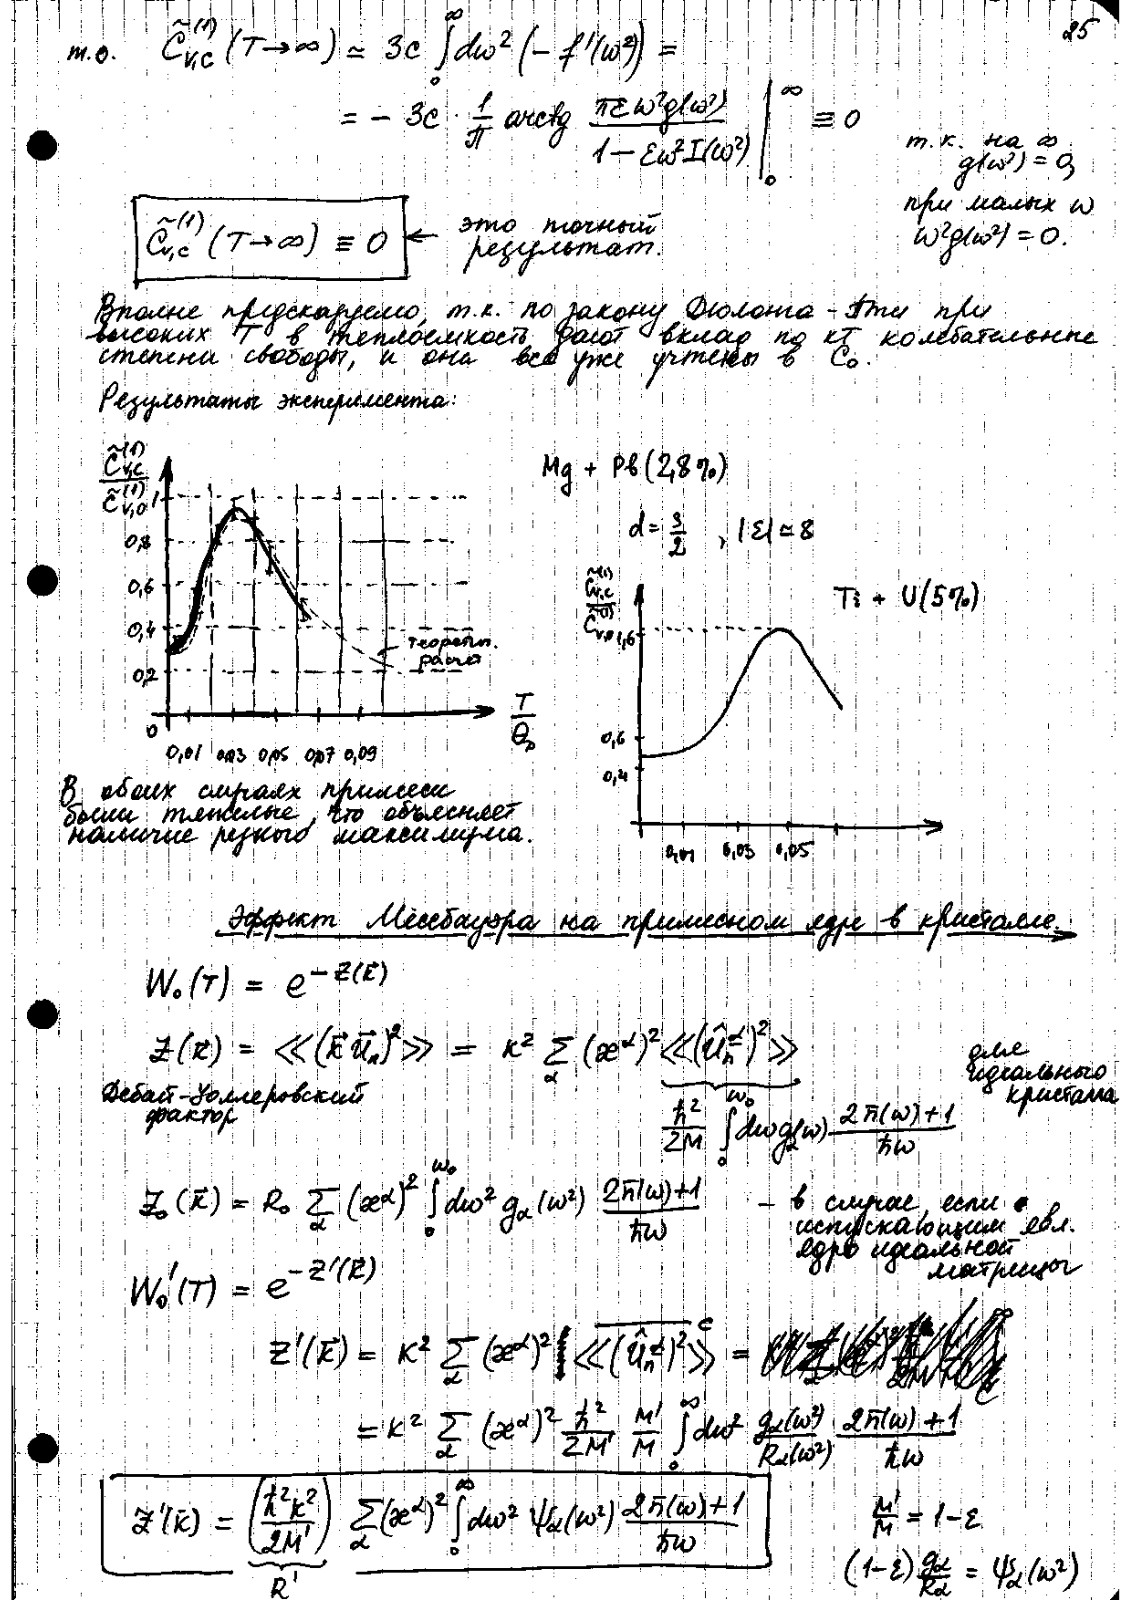 25
т.о. C̃_{v,c}^{(1)} (T→∞) ≃ 3c ∫_0^∞ dω² (−f'(ω²)) =
= − 3c · 1/π arctg (πεω²g(ω²))/(1−εω²I(ω²)) |_0^∞ ≡ 0
т.к. на ∞
g(ω²) = 0,
при малых ω
ω²g(ω²) = 0.
C̃_{v,c}^{(1)} (T→∞) ≡ 0 ← это точный
результат.
Вполне предсказуемо, т.к. по закону Дюлонга-Пти при
высоких T в теплоемкость дают вклад по кТ колебательные
степени свободы, и они все уже учтены в C₀.
Результаты эксперимента:
C̃_{v,c}^{(1)} / C̃_{v,0}^{(1)}
1
0,8
0,6
0,4
0,2
0
0,01 0,03 0,05 0,07 0,09
T/θ_D
теорети.
расчет
Mg + Pb (2,8%)
d = 3/2 , |ε| ≃ 8
Ti + U (5%)
C̃_{v,c}^{(1)} / C̃_{v,0}^{(1)}
1,6
0,6
0,4
0,01 0,03 0,05
В обоих случаях примеси
были тяжелые, что объясняет
наличие резкого максимума.
Эффект Мессбауэра на примесном ядре в кристалле.
W₀(T) = e^{−Z(k⃗)}
Z(k⃗) = ≪(k⃗u⃗_n)²≫ = k² Σ_α (æ^α)² ≪(û_n^α)²≫
Дебай-Уоллеровский
фактор
ħ²/2M ∫_0^{ω₀} dω g_α(ω) (2n̄(ω)+1)/ħω
для
идеального
кристалла
Z₀(k⃗) = R₀ Σ_α (æ^α)² ∫_0^{ω₀} dω² g_α(ω²) (2n̄(ω)+1)/ħω
– в случае, если
испускающим явл.
ядро идеальной
матрицы
W₀'(T) = e^{−Z'(k⃗)}
Z'(k⃗) = k² Σ_α (æ^α)² ≪(û_n^α)²≫^c =
= k² Σ_α (æ^α)² ħ²/2M' M'/M ∫_0^∞ dω² g_α(ω²)/R_α(ω²) (2n̄(ω)+1)/ħω
Z'(k⃗) = (ħ²k²/2M') Σ_α (æ^α)² ∫_0^∞ dω² ψ_α(ω²) (2n̄(ω)+1)/ħω
R'
M'/M = 1−ε
(1−ε) g_α/R_α = ψ_α(ω²)